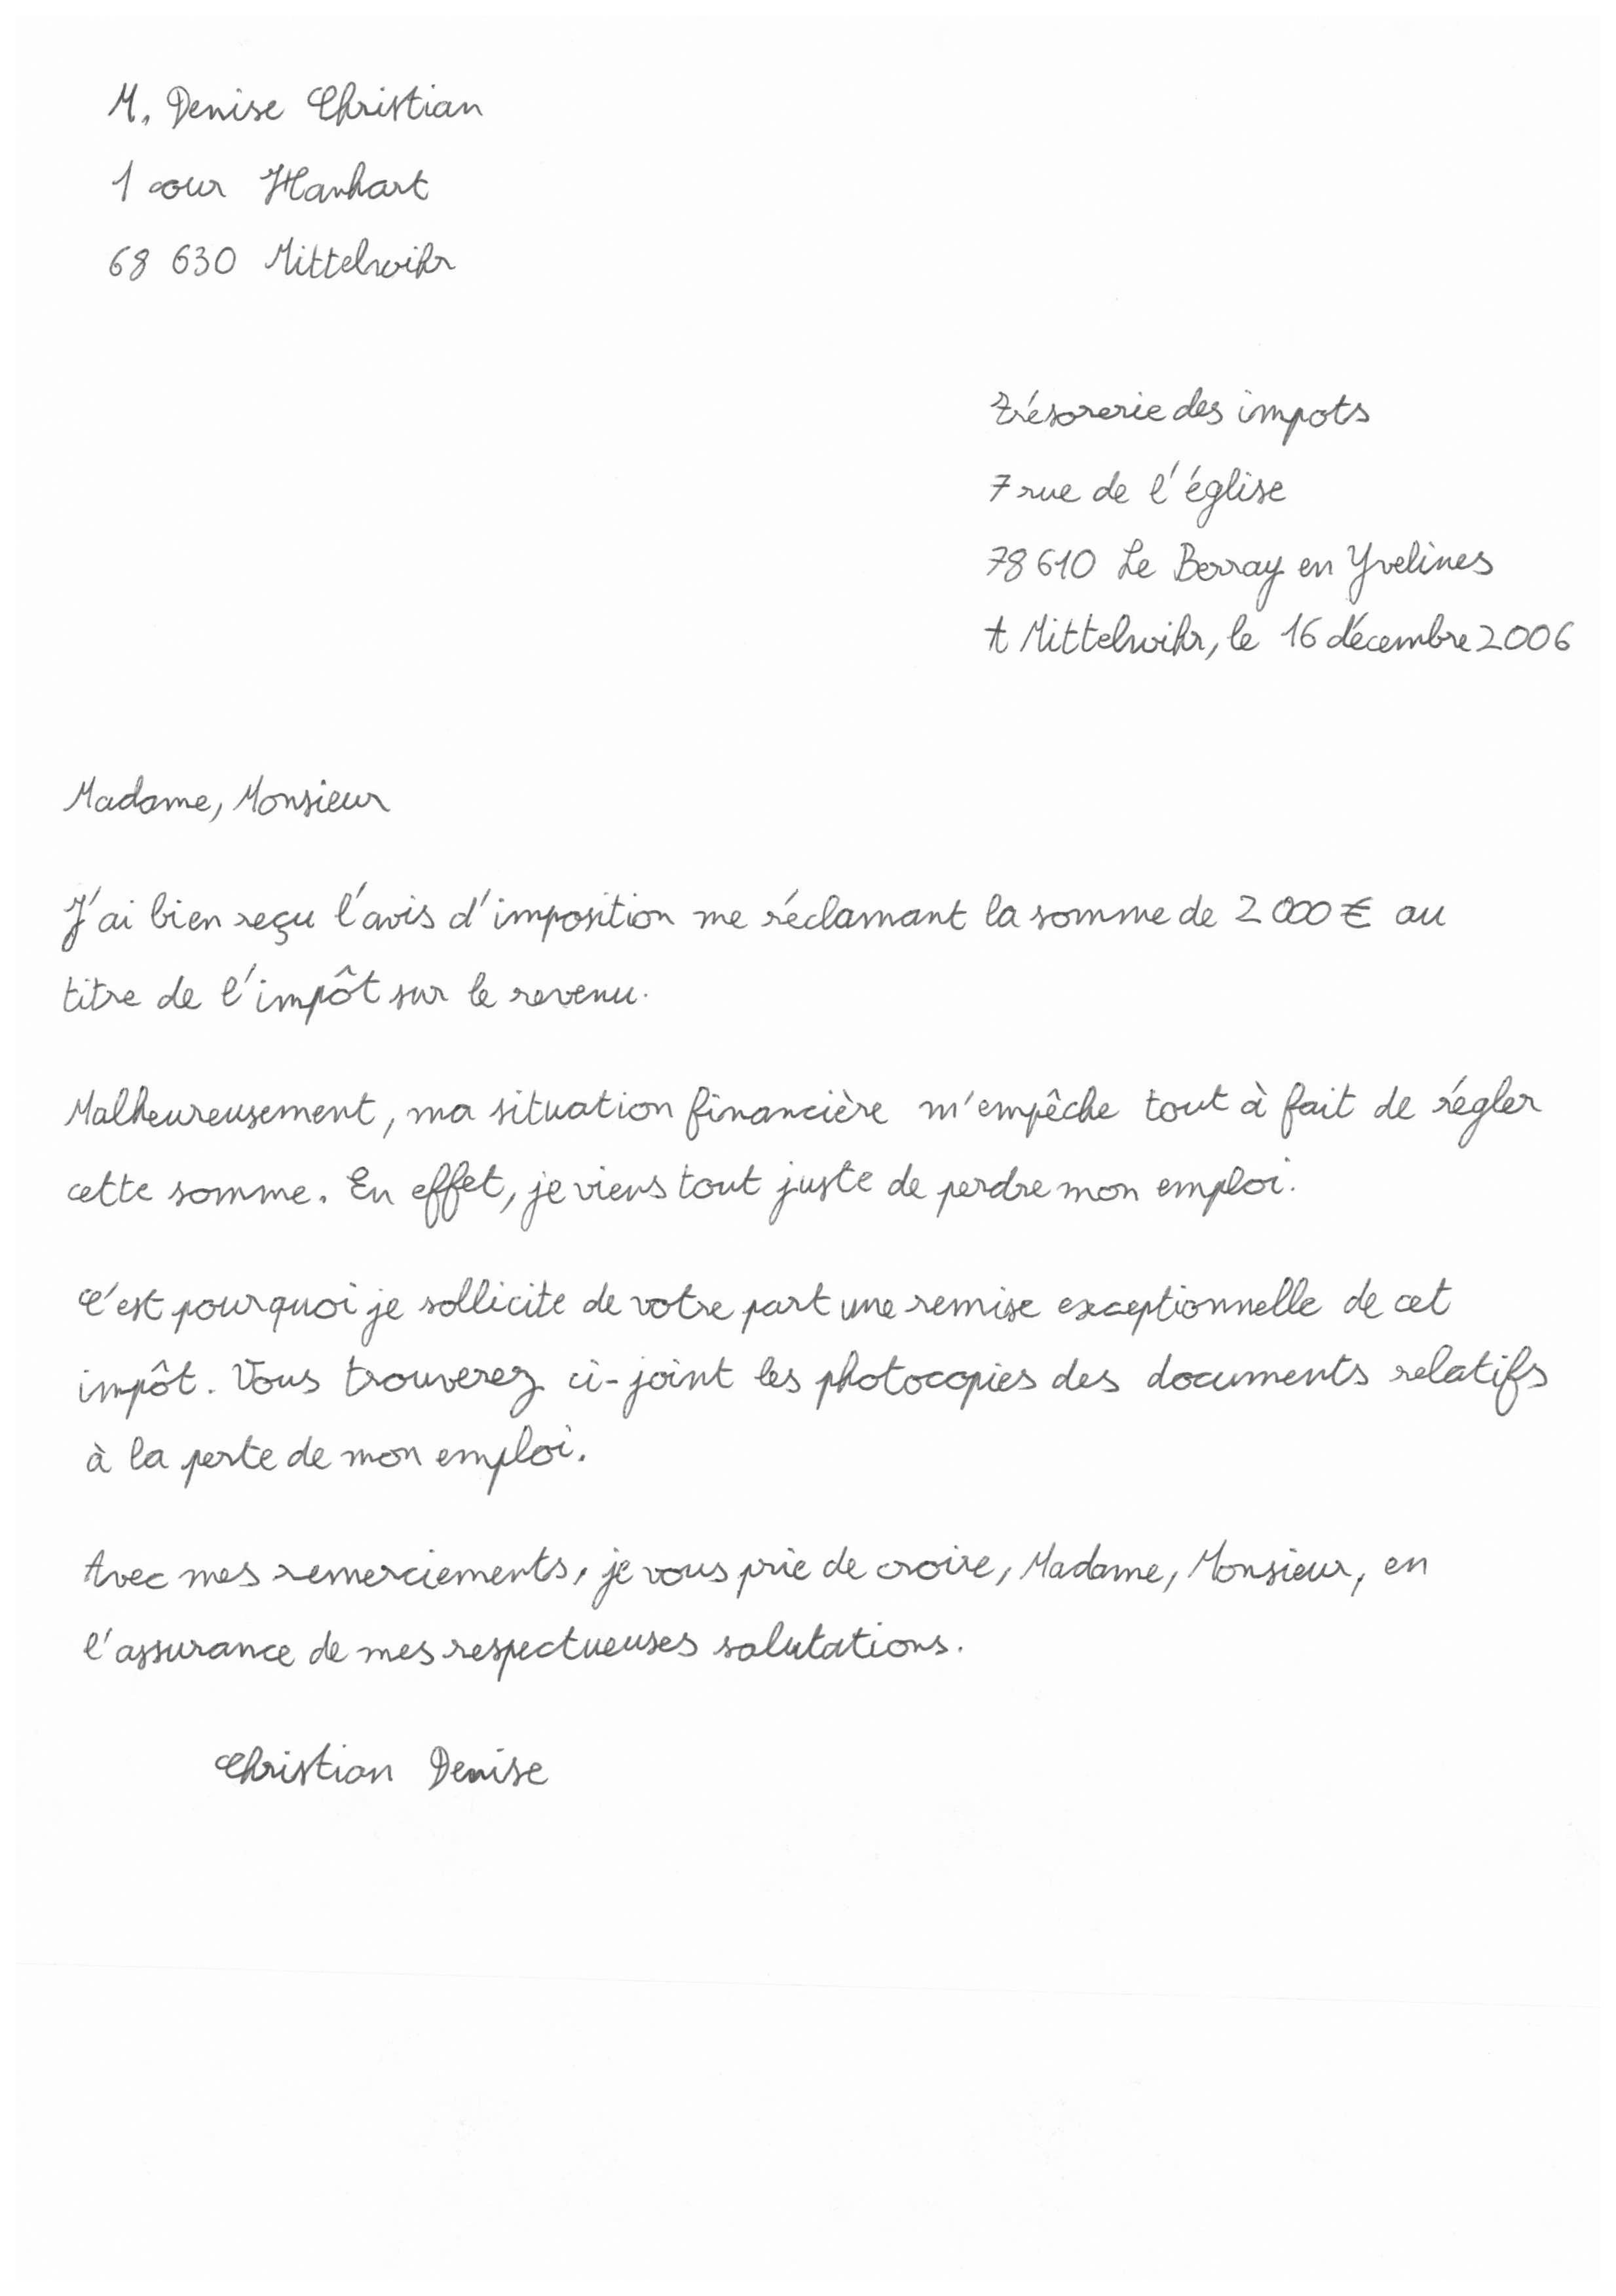 M. Denise Christian
1 cour Hanhart
68 630 Mittelwihr
trésorerie des impots
7 rue de l'église
78 610 Le Berray en Yvelines
A Mittelwihr, le 16 décembre 2006
Madame, Monsieur
J'ai bien reçu l'avis d'imposition me réclamant la somme de 2 000 € au
titre de l'impôt sur le revenu.
Malheureusement, ma situation financière m'empêche tout à fait de régler
cette somme. En effet, je viens tout juste de perdre mon emploi.
C'est pourquoi je sollicite de votre part une remise exceptionnelle de cet
impôt. Vous trouverez ci-joint les photocopies des documents relatifs
à la perte de mon emploi.
Avec mes remerciements, je vous prie de croire, Madame, Monsieur, en
l'assurance de mes respectueuses salutations.
Christian Denise